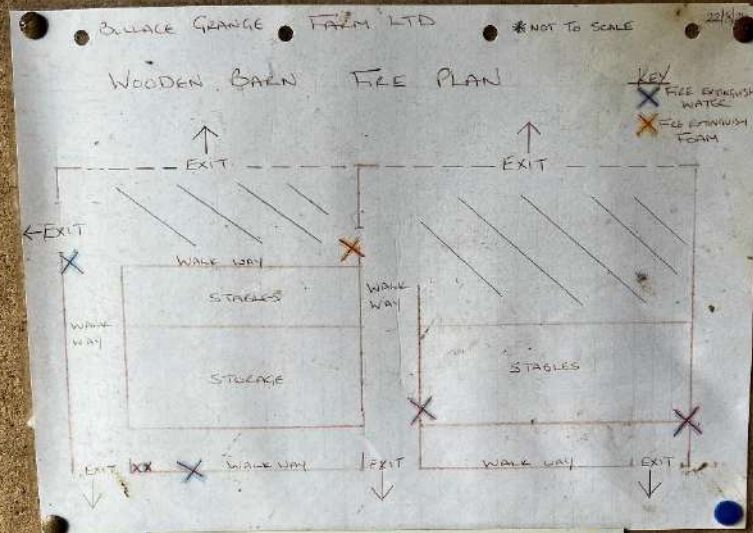 BULLACE GRANGE FARM LTD
*NOT TO SCALE
WOODEN BARN FIRE PLAN
KEY
X FIRE EXTINGUISH
WATER
X FIRE EXTINGUISH
FOAM
EXIT
EXIT
←EXIT
WALK WAY
STABLES
WALK
WAY
WALK
WAY
STORAGE
STABLES
EXIT
XX
WALK WAY
EXIT
WALK WAY
EXIT